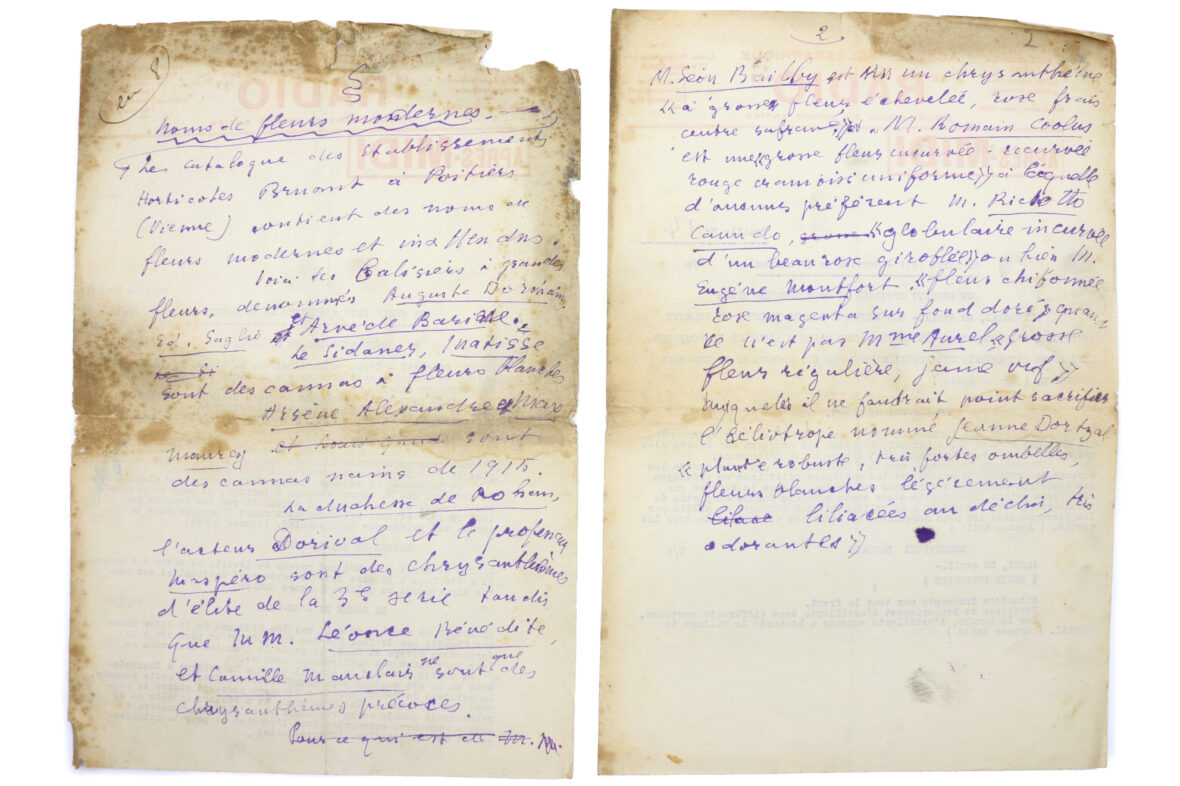 8
Noms de fleurs modernes.
Le catalogue des Etablissements
Horticoles Bruant à Poitiers
(Vienne) contient des noms de
fleurs modernes et inattendus.
Voici des Balisiers à grandes
fleurs, dénommés Auguste Dorchain,
Ed. Saglio et Arvède Barine.
Le Sidaner, Matisse
sont des cannas à fleurs blanches
Arsène Alexandre & Max
Maurey et Louis sont
des cannas nains de 1915.
La duchesse de Rohan,
l'acteur Dorival et le professeur
Maspéro sont des chrysanthèmes
d'élite de la 3e serie tandis
que MM. Léonce Bénédite,
et Camille Mauclair ne sont que des
chrysanthèmes précoces.
Pour ce qui est de M.
2
M. Léon Bailby est un chrysanthème
«à grosse fleur échevelée, rose frais
centre safran» M. Romain Coolus
est une «grosse fleur incurvée récurvée
rouge cramoisi uniforme» à laquelle
d'aucuns préfèrent M. Riciotto
Canudo, «globulaire incurvée
d'un beau rose giroflée» ou bien M.
Eugène Montfort «fleur chiffonnée
rose magenta sur fond doré» quand
ce n'est pas Mme Aurel «Grosse
fleur régulière, jaune vif»
auxquels il ne faudrait point sacrifier
l'héliotrope nommé Jeanne Dortzal
«plante robuste, très fortes ombelles,
fleurs blanches légèrement
lilacé liliacées au déclin, très
odorantes»